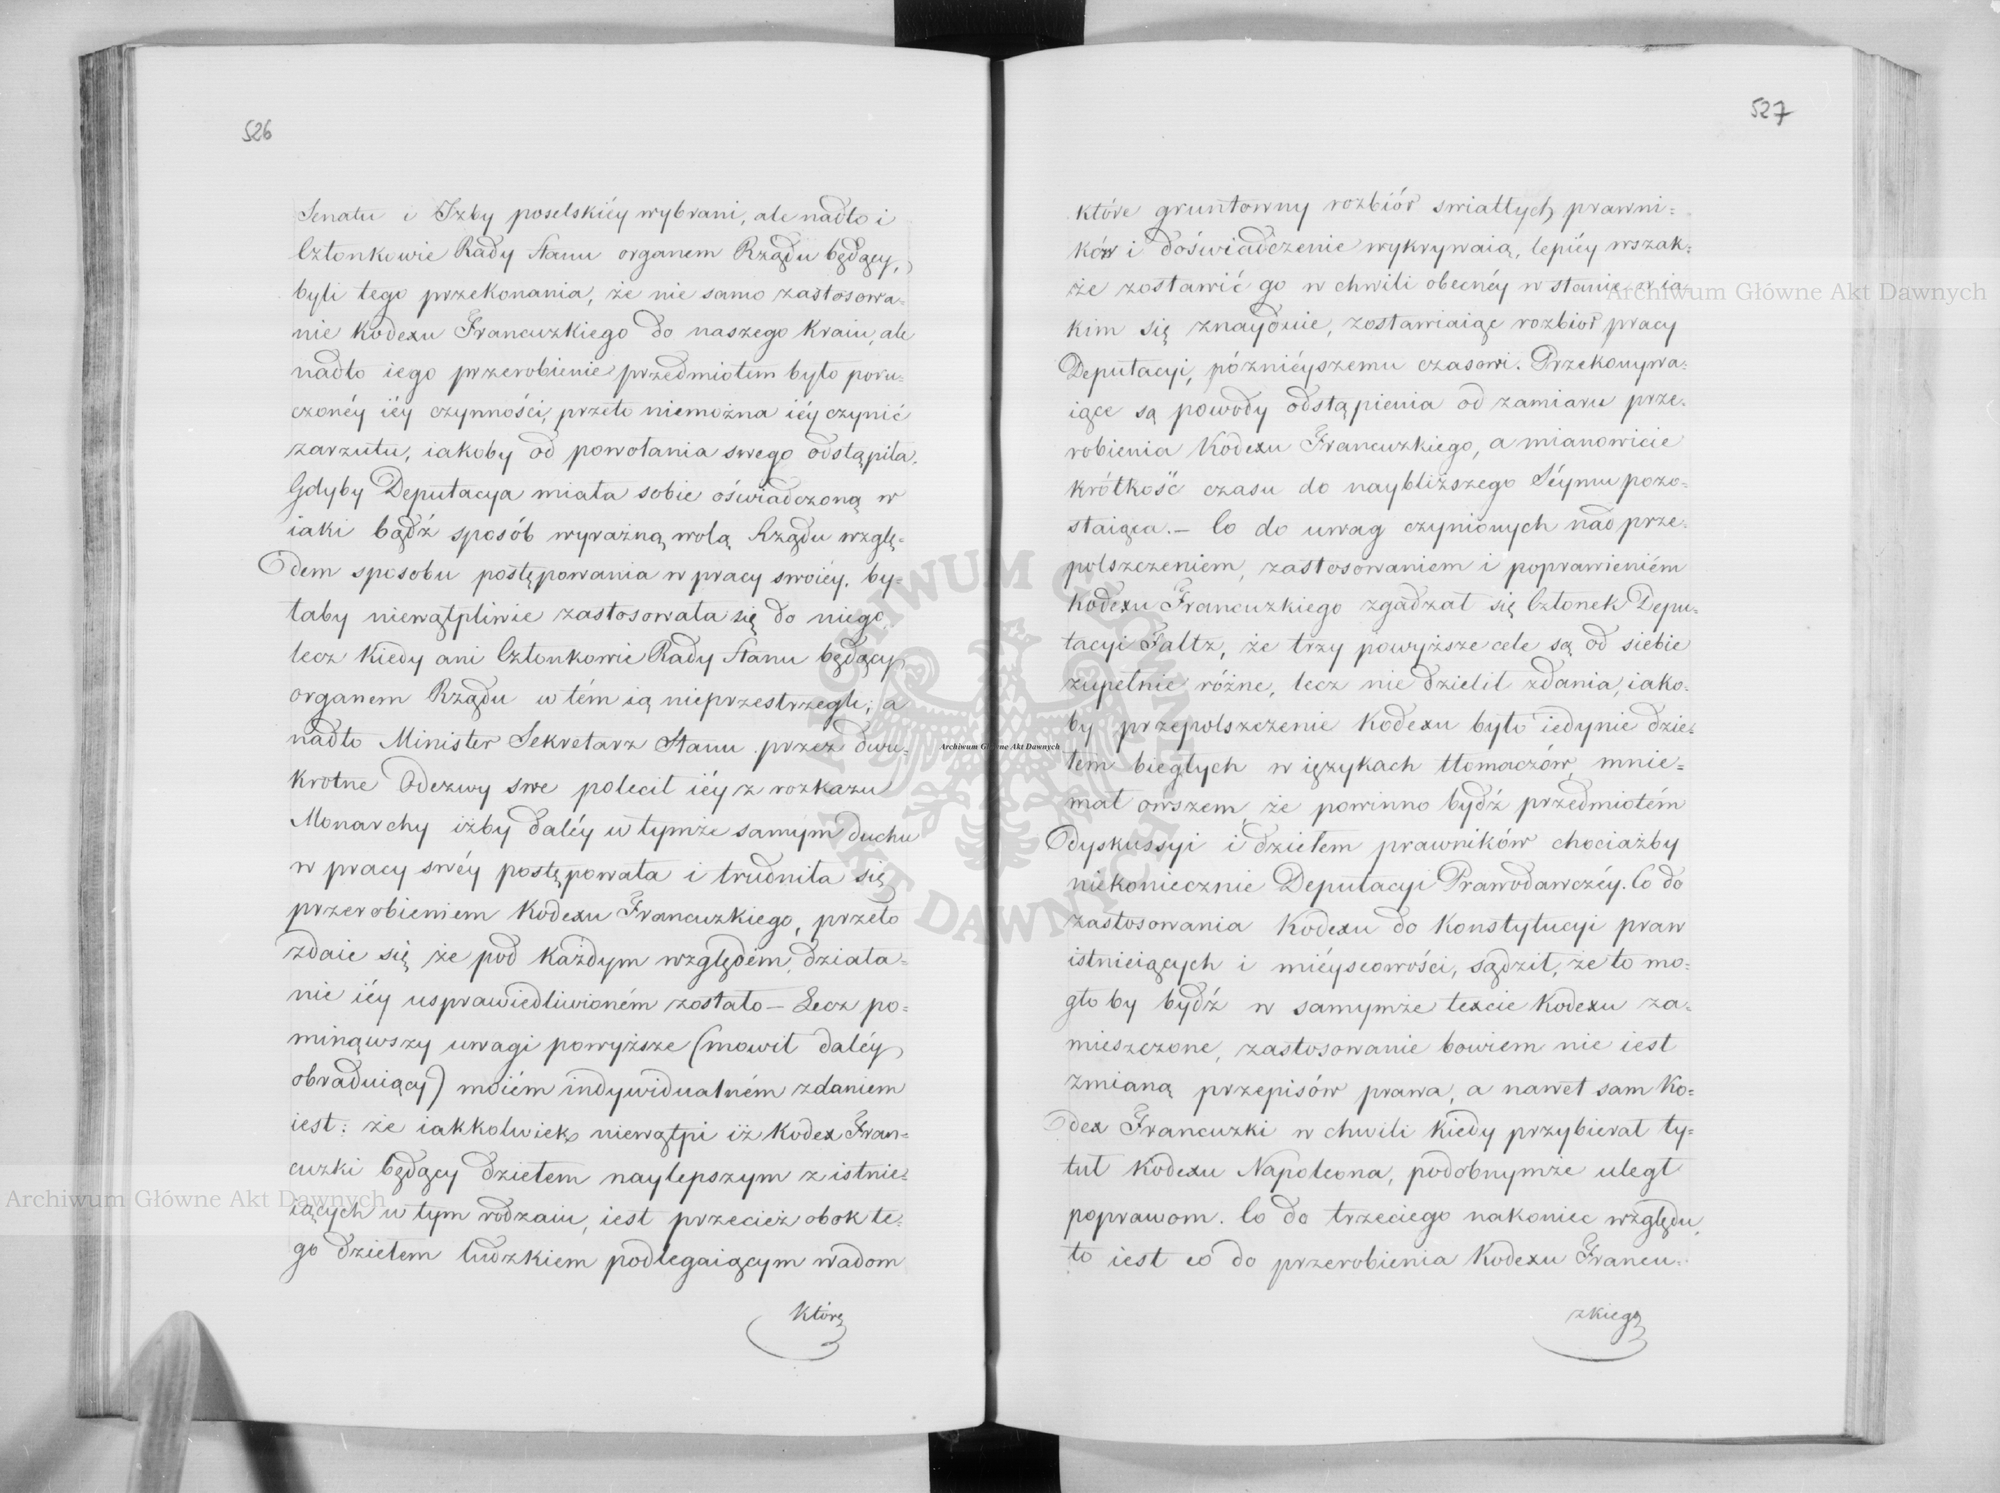 526
Senatu i Izby poselskiéy wybrani, ale nadto i
Członkowie Rady Stanu organem Rządu będący,
byli tego przekonania, że nie samo zastosowa=
nie Kodexu Francuzkiego do naszego Kraiu, ale
nadto iego przerobienie przedmiotem było poru=
czonéy iéy czynności, przeto niemożna iéy czynić
zarzutu, iakoby od powołania swego odstąpiła.
Gdyby Deputacya miała sobie oświadczoną w
iaki bądź sposób wyraźną wolą Rządu wzglę=
dem sposobu postępowania w pracy swoiéy, by=
łaby niewątpliwie zastosowała się do niego,
lecz Kiedy ani Członkowie Rady Stanu będący
organem Rządu w tém ią nieprzestrzegli, a
nadto Minister Sekretarz Stanu przez dwu=
krotne Odezwy swe polecił iéy z rozkazu
Monarchy iżby daléy w tymże samym duchu
w pracy swéy postępowała i trudniła się
przerobieniem Kodexu Francuzkiego, przeto
zdaie się że pod Każdym względem, działa=
nie iéy usprawiedliwioném zostało — Lecz po=
minąwszy uwagi powyższe (mowił daléy
obraduiący) moiém indywidualném zdaniem
iest: że iakkolwiek niewątpi iż Kodex Fran=
cuzki będący dziełem naylepszym z istnie=
iących w tym rodzaiu, iest przecież obok te=
go dziełem ludzkiem podlegaiącym wadom
Które
527
które gruntowny rozbiór swiatłych prawni=
ków i doświadczenie wykrywaią, lepiéy wszak=
że zostawić go w chwili obecnéy w stanie w ia=
kim się znayduie, zostawiaiąc rozbiór pracy
Deputacyi, późniéyszemu czasowi. Przekonywa=
iące są powody odstąpienia od zamiaru prze=
robienia Kodexu Francuzkiego, a mianowicie
krótkość czasu do naybliższego Séymu pozo=
staiąca. — Co do uwag czynionych nad prze=
polszczeniem, zastosowaniem i poprawieniém
Kodexu Francuzkiego zgadzał się Członek Depu=
tacyi Faltz, że trzy powyższe cele są od siebie
zupełnie różne, lecz nie dzielił zdania, iako=
by przepolszczenie Kodexu było iedynie dzie=
łem biegłych w ięzykach tłomaczów, mnie=
mał owszem, że powinno bydź przedmiotém
dyskussyi i dziełem prawników chociażby
niekoniecznie Deputacyi Prawodawczéy. Co do
zastosowania Kodexu do Konstytucyi praw
istnieiących i miéyscowości, sądził, że to mo=
gło by bydź w samymże texcie Kodexu za=
mieszczone, zastosowanie bowiem nie iest
zmianą przepisów prawa, a nawet sam Ko=
dex Francuzki w chwili kiedy przybierał ty=
tuł Kodexu Napoleona, podobnymże uległ
poprawom. Co do trzeciego nakoniec względu,
to iest co do przerobienia Kodexu Francu=
zkiego
Archiwum Główne Akt Dawnych
Archiwum Główne Akt Dawnych
Archiwum Główne Akt Dawnych
ARCHIWUM GŁÓWNE
AKT DAWNYCH